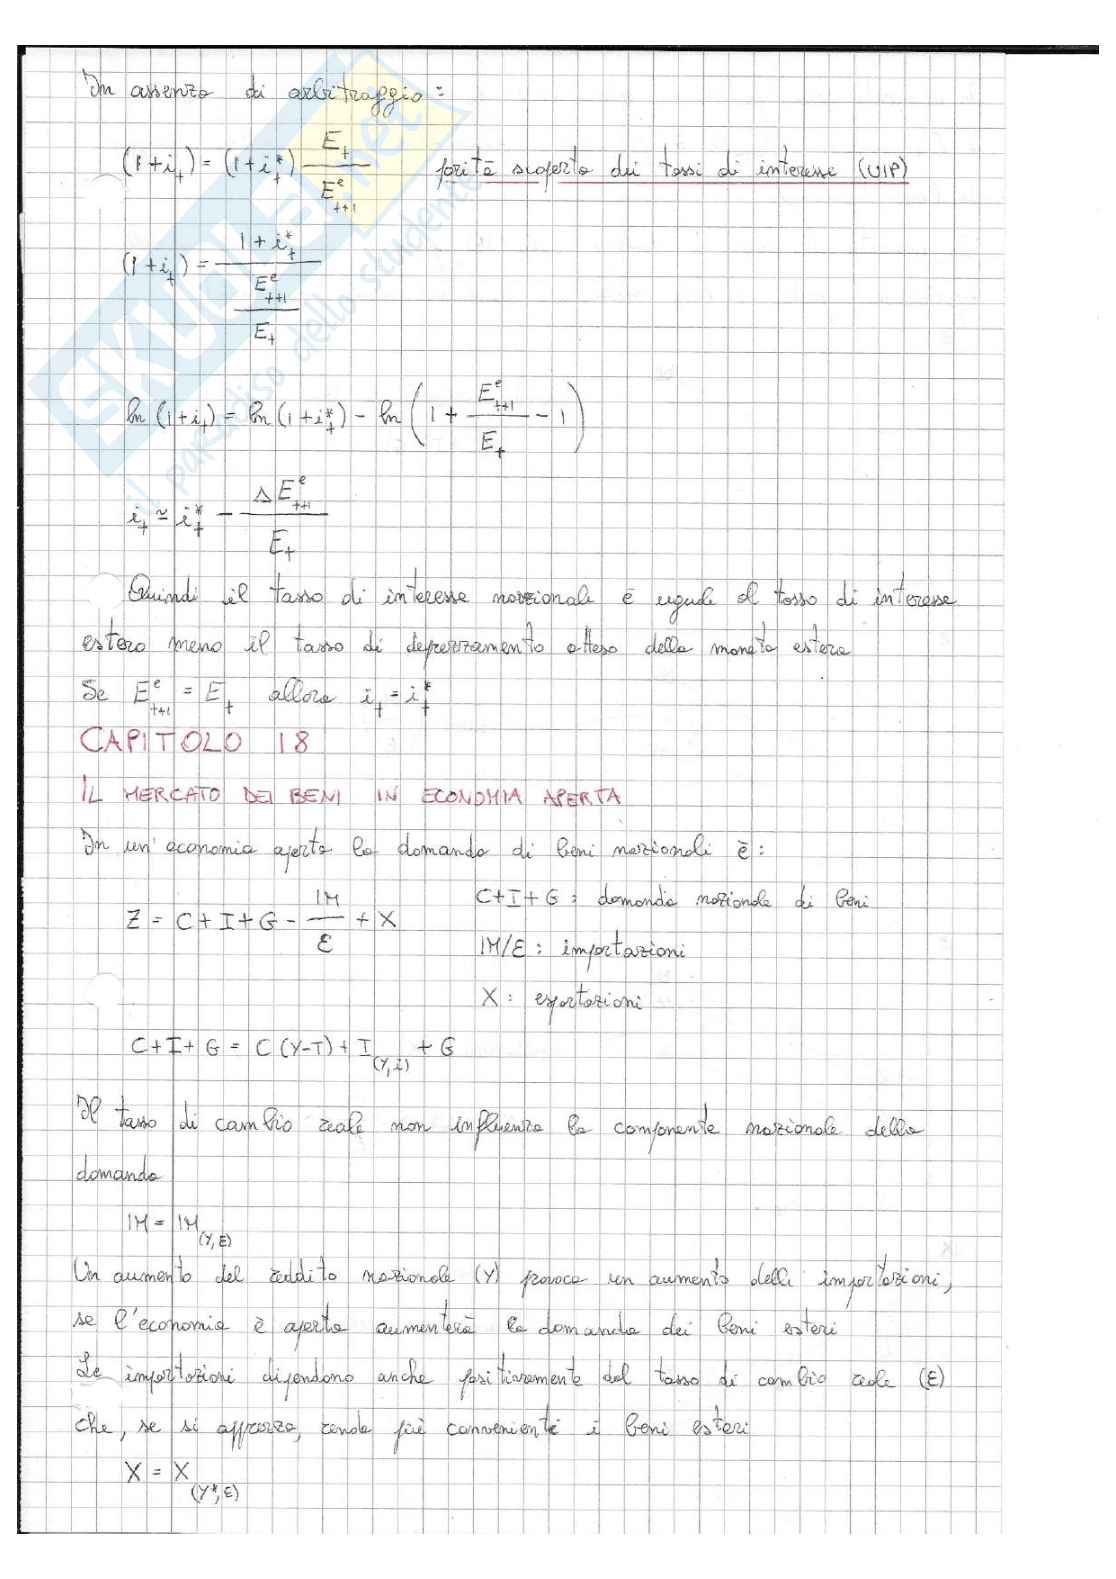 In assenza di arbitraggio:
(1+i_t) = (1+i*_t) E_t / E^e_{t+1} parità scoperta dei tassi di interesse (UIP)
(1+i_t) = (1+i*_t) / (E^e_{t+1} / E_t)
ln (1+i_t) = ln (1+i*_t) - ln (1 + E^e_{t+1} / E_t - 1)
i_t ≃ i*_t - ΔE^e_{t+1} / E_t
Quindi il tasso di interesse nazionale è uguale al tasso di interesse
estero meno il tasso di deprezzamento atteso della moneta estera
Se E^e_{t+1} = E_t allora i_t = i*_t
CAPITOLO 18
IL MERCATO DEI BENI IN ECONOMIA APERTA
In un'economia aperta la domanda di beni nazionali è:
Z = C + I + G - IM/ε + X
C+I+G : domanda nazionale di beni
IM/ε : importazioni
X : esportazioni
C+I+G = C (Y-T) + I_(Y,i) + G
Il tasso di cambio reale non influenza la componente nazionale della
domanda
IM = IM_(Y,ε)
Un aumento del reddito nazionale (Y) provoca un aumento delle importazioni,
se l'economia è aperta aumenterà la domanda dei beni esteri
Le importazioni dipendono anche positivamente dal tasso di cambio reale (ε)
che, se si apprezza, rende più convenienti i beni esteri
X = X_(Y*,ε)
SKUOLA.net
il paradiso dello studente